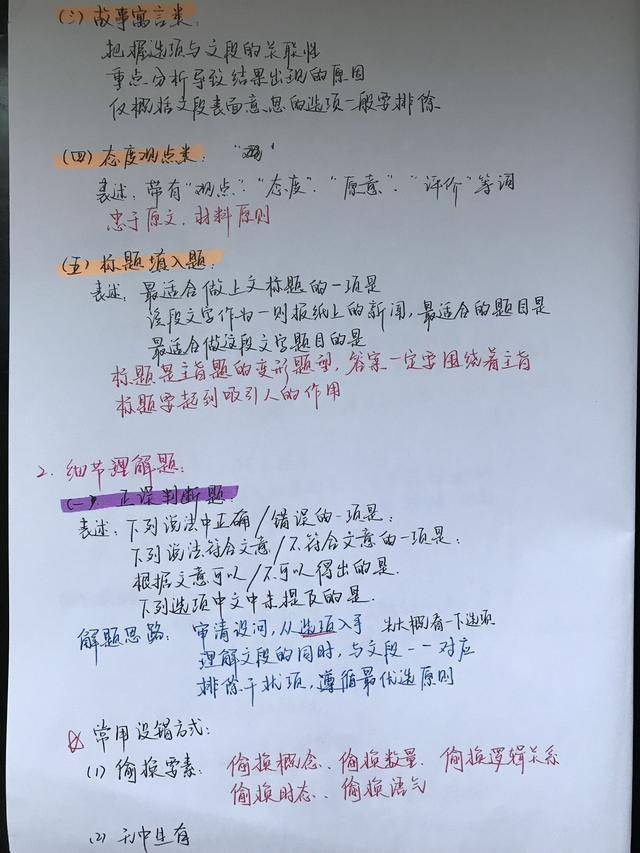 (三) 故事寓言类:
把握选项与文段的关联性
重点分析导致结果出现的原因
仅概括文段表面意思的选项一般要排除
(四) 态度观点类:
表述: 带有"观点"、"态度"、"原意"、"评价"等词
忠于原文, 材料原则
(五) 标题填入题:
表述: 最适合做上文标题的一项是
该段文字作为一则报纸上的新闻, 最适合的题目是
最适合做这段文字题目的是
标题是主旨题的变形题型, 答案一定要围绕着主旨
标题要起到吸引人的作用
2. 细节理解题:
(一) 正误判断题:
表述: 下列说法中正确/错误的一项是:
下列说法符合文意/不符合文意的一项是:
根据文意可以/不可以得出的是.
下列选项中文中未提及的是.
解题思路: 审清设问, 从选项入手 先大概看一下选项
理解文段的同时, 与文段一一对应
排除干扰项, 遵循最优选原则
常用设错方式:
(1) 偷换要素: 偷换概念、偷换数量、偷换逻辑关系
偷换时态、偷换语气
(2) 无中生有